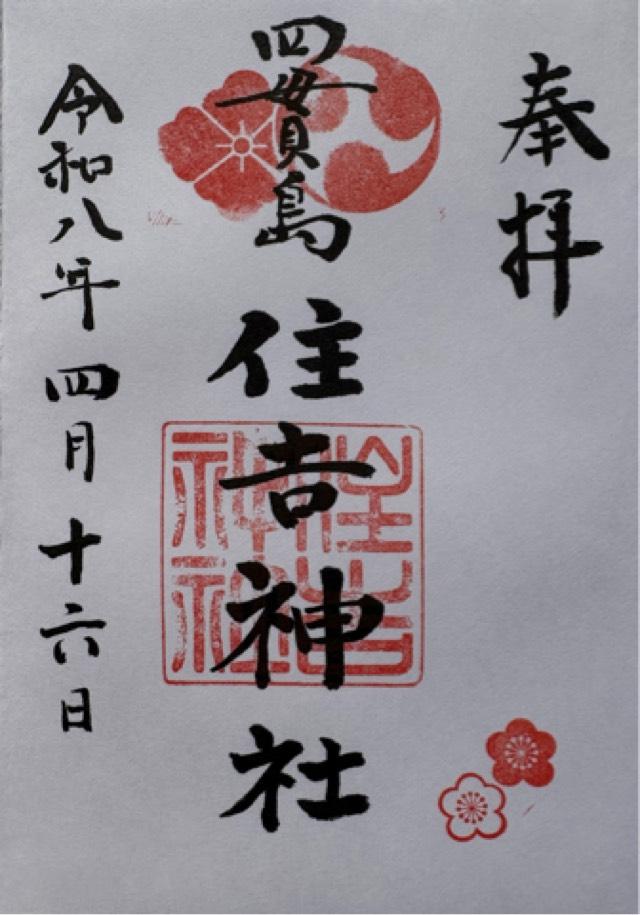 奉拝
四貫島
住吉神社
令和八年四月十六日
住吉
神社